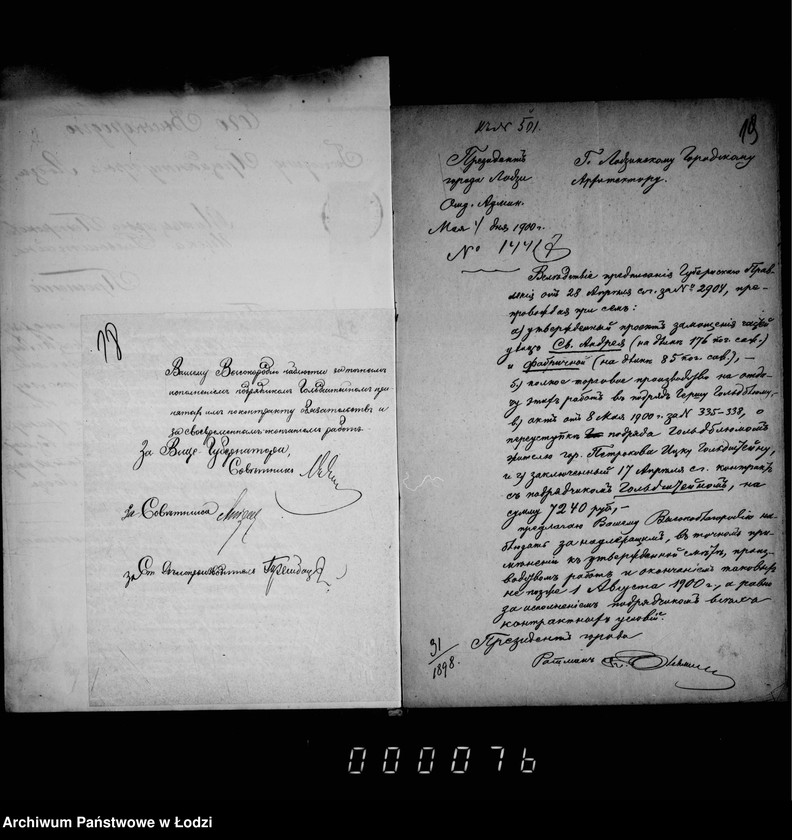 18
Вашему Высокородию наблюсти за точнымъ
исполненіемъ подрядчикомъ Гольдштейномъ при-
нятыхъ имъ по контракту обязательствъ и
за своевременнымъ окончаніемъ работъ.
За Вице Губернатора,
Совѣтникъ
за Совѣтника
за Ст. Дѣлопроизводителя
К. № 501.
19
Президентъ
города Лодзи
Отд. Админ.
Мая 4/ дня 1900 г.
№ 1441
Г. Лодзинскому Городскому
Архитектору.
Вслѣдствіе предписанія Губернскаго Прав-
ленія отъ 28 Апрѣля с.г. за № 2904, пре-
провождая при семъ:
а) утвержденный проектъ замощенія
улицъ Св. Андрея (на длинѣ 176 пог. саж.)
и Фабричной (на длинѣ 85 пог. саж.), —
б) копію торговъ производства на отда-
чу этихъ работъ въ подрядъ Гершу Гольдблюму,
в) актъ отъ 8 Мая 1900 г. за № 335-338, о
переуступкѣ подряда Гольдблюмомъ
жителю гор. Петрокова Ицку Гольдштейну,
и г) заключенный 17 Апрѣля с.г. контрактъ
съ подрядчикомъ Гольдштейномъ, на
сумму 7240 руб, —
предлагаю Вашему Высокоблагородію на-
блюдать за надлежащимъ, въ точномъ при-
мѣненіи къ утвержденной смѣтѣ, произ-
водствомъ работъ и окончаніемъ таковыхъ
не позже 1 Августа 1900 г., а равно
за исполненіемъ подрядчикомъ всѣхъ
контрактныхъ условій.
Президентъ города
Ратманъ
31/1898.
000076
Archiwum Państwowe w Łodzi